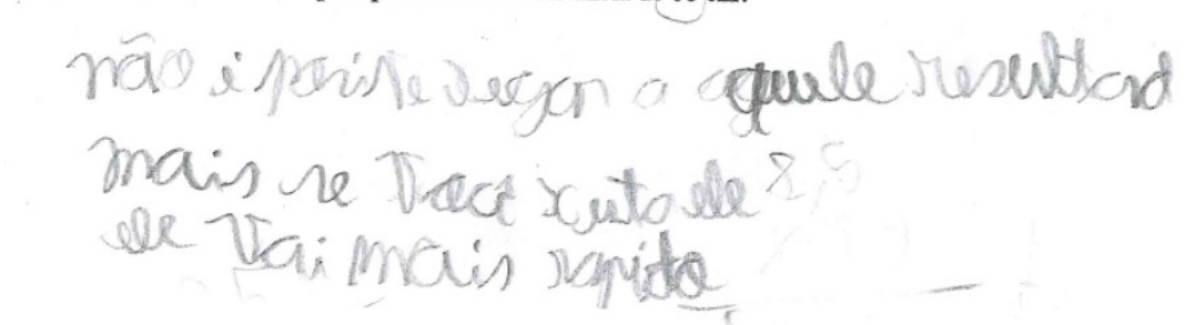 não é posivle xegar a aquele resultado
mais se você xuta ele 2,5
ele vai mais rapido